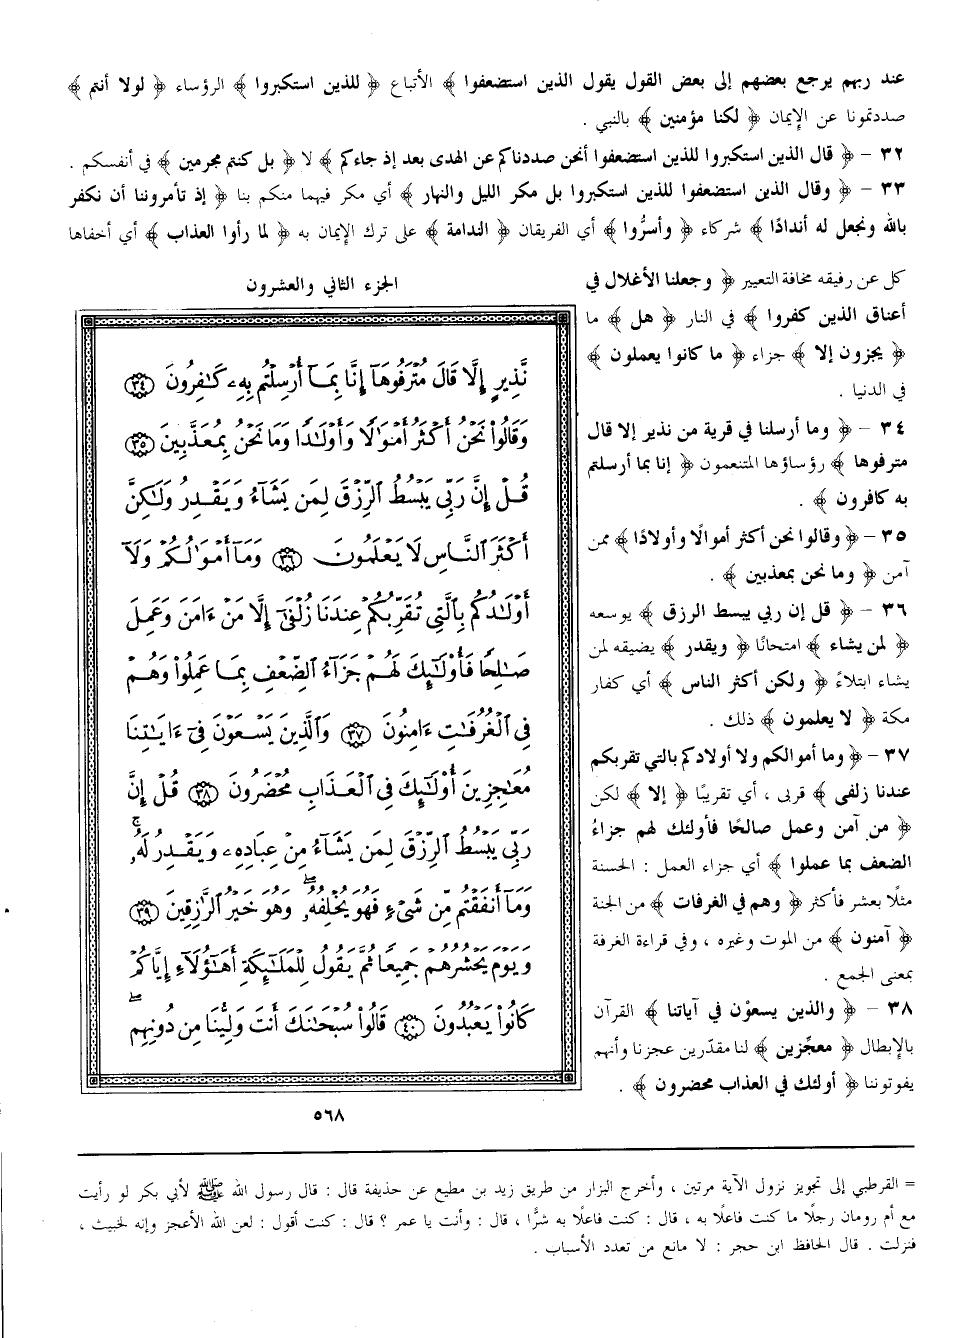 عند ربهم يرجع بعضهم إلى بعض القول يقول الذين استضعفوا ﴾ الأتباع ﴿ للذين استكبروا ﴾ الرؤساء ﴿ لولا أنتم ﴾
صددتمونا عن الإيمان ﴿ لكنا مؤمنين ﴾ بالنبي .
٣٢ – ﴿ قال الذين استكبروا للذين استضعفوا أنحن صددناكم عن الهدى بعد إذ جاءكم ﴾ لا ﴿ بل كنتم مجرمين ﴾ في أنفسكم .
٣٣ – ﴿ وقال الذين استضعفوا للذين استكبروا بل مكر الليل والنهار ﴾ أي مكر فيهما منكم بنا ﴿ إذ تأمروننا أن نكفر
بالله ونجعل له أندادًا ﴾ شركاء ﴿ وأسرُّوا ﴾ أي الفريقان ﴿ الندامة ﴾ على ترك الإيمان به ﴿ لما رأوا العذاب ﴾ أي أخفاها
كل عن رفيقه مخافة التعيير ﴿ وجعلنا الأغلال في
أعناق الذين كفروا ﴾ في النار ﴿ هل ﴾ ما
﴿ يجزون إلا ﴾ جزاء ﴿ ما كانوا يعملون ﴾
في الدنيا .
٣٤ – ﴿ وما أرسلنا في قرية من نذير إلا قال
مترفوها ﴾ رؤساؤها المتنعمون ﴿ إنا بما أرسلتم
به كافرون ﴾ .
٣٥ – ﴿ وقالوا نحن أكثر أموالًا وأولادًا ﴾ ممن
آمن ﴿ وما نحن بمعذبين ﴾ .
٣٦ – ﴿ قل إن ربي يبسط الرزق ﴾ يوسعه
﴿ لمن يشاء ﴾ امتحانًا ﴿ ويقدر ﴾ يضيقه لمن
يشاء ابتلاءً ﴿ ولكن أكثر الناس ﴾ أي كفار
مكة ﴿ لا يعلمون ﴾ ذلك .
٣٧ – ﴿ وما أموالكم ولا أولادكم بالتي تقربكم
عندنا زلفى ﴾ قربى ، أي تقريبًا ﴿ إلا ﴾ لكن
﴿ من آمن وعمل صالحًا فأولئك لهم جزاءُ
الضعف بما عملوا ﴾ أي جزاء العمل : الحسنة
مثلًا بعشر فأكثر ﴿ وهم في الغرفات ﴾ من الجنة
﴿ آمنون ﴾ من الموت وغيره ، وفي قراءة الغرفة
بمعنى الجمع .
٣٨ – ﴿ والذين يسعوْن في آياتنا ﴾ القرآن
بالإبطال ﴿ معجِّزين ﴾ لنا مقدّرين عجزنا وأنهم
يفوتوننا ﴿ أولئك في العذاب محضرون ﴾ .
الجزء الثاني والعشرون
نَّذِيرٍ إِلَّا قَالَ مُتْرَفُوهَآ إِنَّا بِمَآ أُرْسِلْتُم بِهِۦ كَٰفِرُونَ ٣٤
وَقَالُوا۟ نَحْنُ أَكْثَرُ أَمْوَٰلًا وَأَوْلَٰدًا وَمَا نَحْنُ بِمُعَذَّبِينَ ٣٥
قُلْ إِنَّ رَبِّى يَبْسُطُ ٱلرِّزْقَ لِمَن يَشَآءُ وَيَقْدِرُ وَلَٰكِنَّ
أَكْثَرَ ٱلنَّاسِ لَا يَعْلَمُونَ ٣٦ وَمَآ أَمْوَٰلُكُمْ وَلَآ
أَوْلَٰدُكُم بِٱلَّتِى تُقَرِّبُكُمْ عِندَنَا زُلْفَىٰٓ إِلَّا مَنْ ءَامَنَ وَعَمِلَ
صَٰلِحًا فَأُو۟لَٰٓئِكَ لَهُمْ جَزَآءُ ٱلضِّعْفِ بِمَا عَمِلُوا۟ وَهُمْ
فِى ٱلْغُرُفَٰتِ ءَامِنُونَ ٣٧ وَٱلَّذِينَ يَسْعَوْنَ فِىٓ ءَايَٰتِنَا
مُعَٰجِزِينَ أُو۟لَٰٓئِكَ فِى ٱلْعَذَابِ مُحْضَرُونَ ٣٨ قُلْ إِنَّ
رَبِّى يَبْسُطُ ٱلرِّزْقَ لِمَن يَشَآءُ مِنْ عِبَادِهِۦ وَيَقْدِرُ لَهُۥ ۚ
وَمَآ أَنفَقْتُم مِّن شَىْءٍ فَهُوَ يُخْلِفُهُۥ ۖ وَهُوَ خَيْرُ ٱلرَّٰزِقِينَ ٣٩
وَيَوْمَ يَحْشُرُهُمْ جَمِيعًا ثُمَّ يَقُولُ لِلْمَلَٰٓئِكَةِ أَهَٰٓؤُلَآءِ إِيَّاكُمْ
كَانُوا۟ يَعْبُدُونَ ٤٠ قَالُوا۟ سُبْحَٰنَكَ أَنتَ وَلِيُّنَا مِن دُونِهِم ۖ
٥٦٨
= القرطبي إلى تجويز نزول الآية مرتين ، وأخرج البزار من طريق زيد بن مطيع عن حذيفة قال : قال رسول الله ﷺ لأبي بكر لو رأيت
مع أم رومان رجلًا ما كنت فاعلًا به ، قال : كنت فاعلًا به شرًّا ، قال : وأنت يا عمر ؟ قال : كنت أقول : لعن الله الأعجز وإنه لخبيث ،
فنزلت . قال الحافظ ابن حجر : لا مانع من تعدد الأسباب .